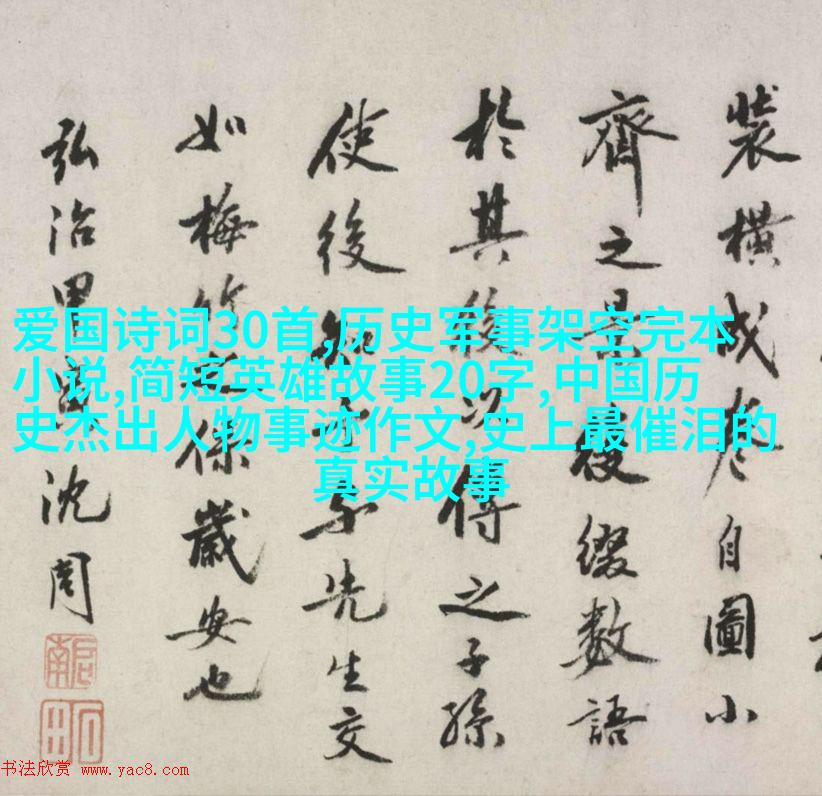 裝橫成卷自圖小
齊之景後綴數語
於其後以傳之子孫
使後先生交
如梅竹保歲安也
弘治甲寅沈周
爱国诗词30首,历史军事架空完本
小说,简短英雄故事20字,中国历
史杰出人物事迹作文,史上最催泪的
真实故事
书法欣赏 www.yac8.com